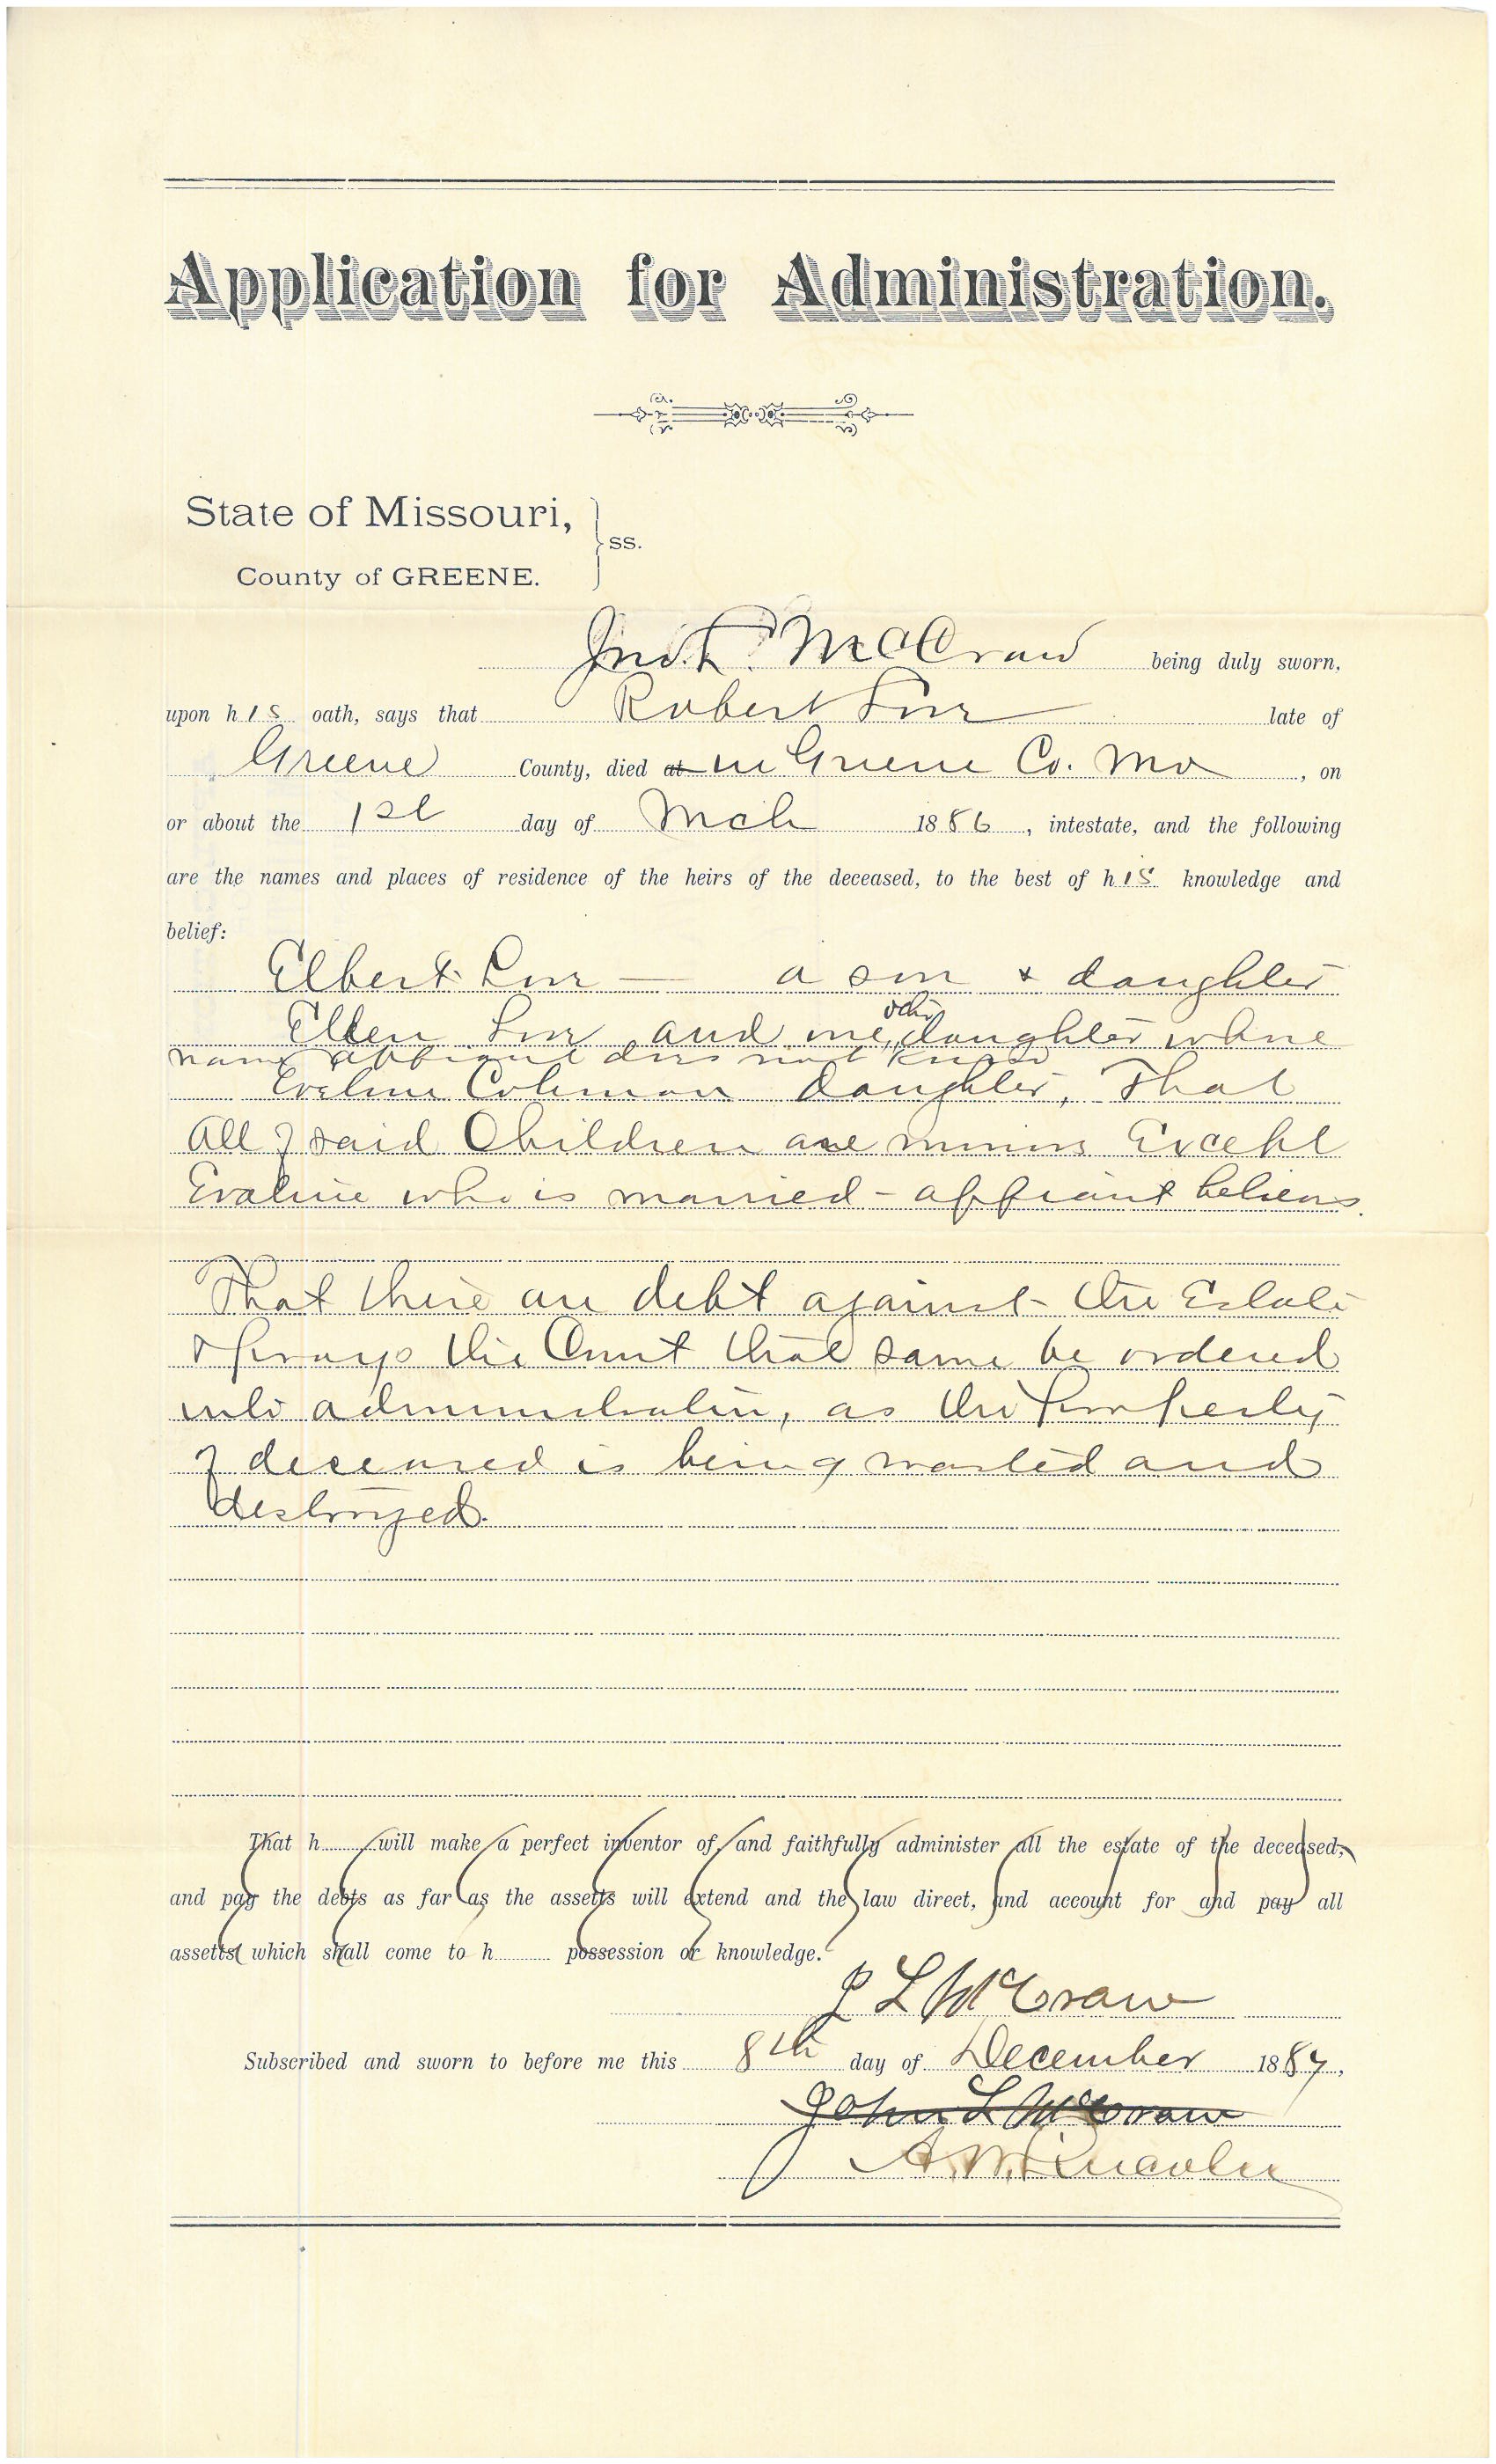 Application for Administration.
State of Missouri,
ss.
County of GREENE.
Jno. L. McCraw being duly sworn,
upon his oath, says that Robert late of
Greene County, died at in Greene Co. Mo , on
or about the 1st day of Mch 1886, intestate, and the following
are the names and places of residence of the heirs of the deceased, to the best of his knowledge and
belief:
Elbert — a son & daughter
Ellen and one other daughter whose
name affiant does not know
Eveline Coleman daughter, That
All of said Children are minors Except
Evaline who is married - affiant believes
That there are debt against the Estate
& prays the Court that same be ordered
into administration, as the Property
of deceased is being wasted and
destroyed.
That h will make a perfect inventor of, and faithfully administer all the estate of the deceased,
and pay the debts as far as the assetts will extend and the law direct, and account for and pay all
assetts which shall come to h possession or knowledge.
J L McCraw
Subscribed and sworn to before me this 8th day of December 1887,
John L McCraw
A. W. Lincoln